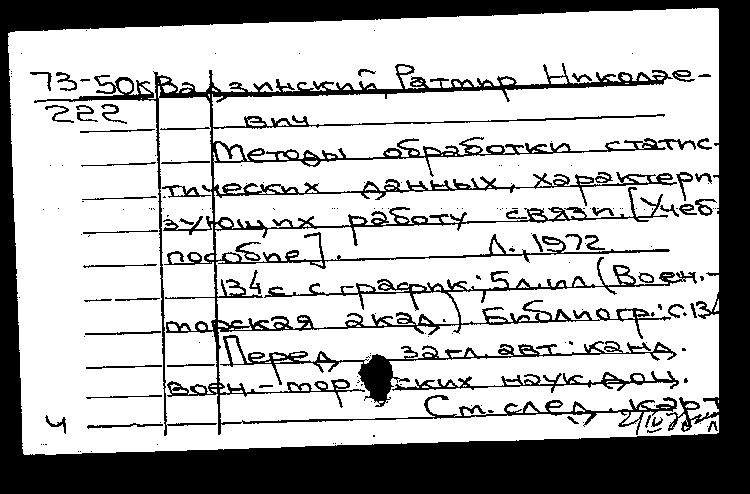 73-50к Вадзинский, Ратмир Николае-
222 вич.
Методы обработки статис-
тических данных, характери-
зующих работу связи. [Учеб.
пособие]. Л., 1972.
134 с. с график.; 5 л. ил. (Воен.-
морская акад.) Библиогр.: с. 134
Перед загл. авт.: канд.
воен.-мор ских наук, доц.
См. след. карт
ч